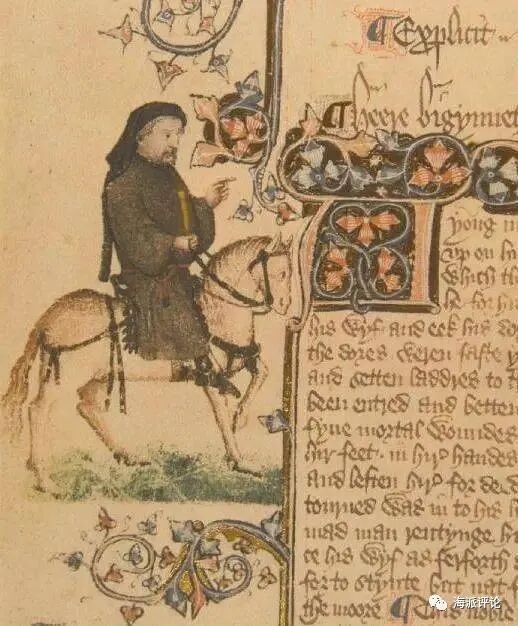 Explicit
Heere bigynneth
yong m
vp on hi
which th
le for hi
his wyf and eek his do
the dores weren faste y
and setten laddres to t
been entred and betten
fyue mortal woundes
hir feet in hir handes
and leften hir for deed
tourned was in to his h
mad man rentynge hi
ce his wyf as ferforth
for to stynte but nat
the moore This noble
海派评论